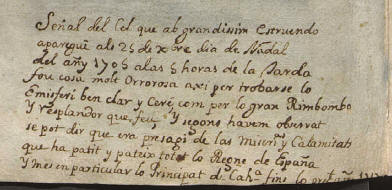 Señal del Cel que ab grandissim estruendo
aparegué als 25 de xbre dia de Nadal
del añy 1705 als 5 horas de la Tarda
fou cosa molt Orrorosa axi per trobarse lo
Emisferi ben clar y Cere com per lo gran Rimbombo
Y resplandor que feu y segons havem observat
se pot dir que era presagi de las miseri y Calamitats
que ha patit y pateix tot lo Regne de España
Y mes en particular lo Principat de Catha fins lo